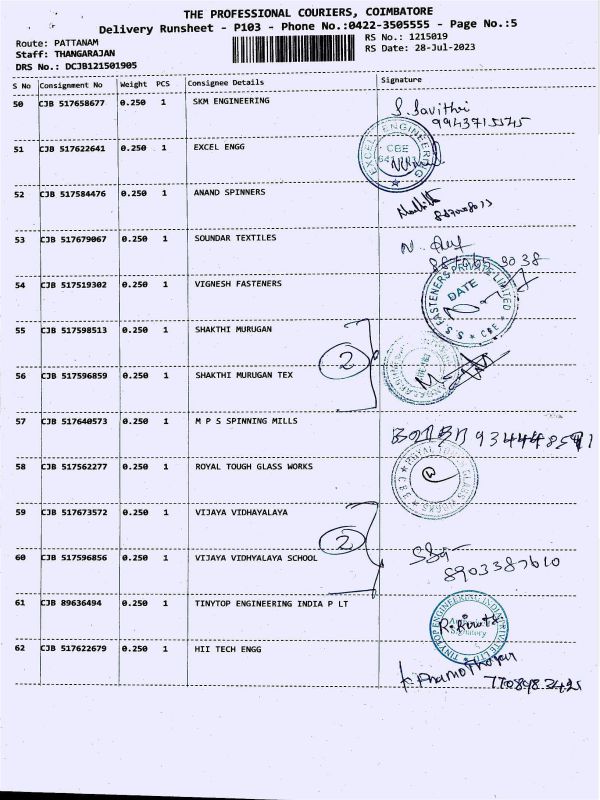 THE PROFESSIONAL COURIERS, COIMBATORE
Delivery Runsheet - P103 - Phone No.:0422-3505555 - Page No.:5
Route: PATTANAM
RS No.: 1215019
Staff: THANGARAJAN
RS Date: 28-Jul-2023
DRS No.: DCJB121501905
S No Consignment No Weight PCS Consignee Details Signature
50 CJB 517658677 0.250 1 SKM ENGINEERING
S. Savithri
9943715545
51 CJB 517622641 0.250 1 EXCEL ENGG
EXCEL ENGINEERING
CBE
52 CJB 517584476 0.250 1 ANAND SPINNERS
53 CJB 517679067 0.250 1 SOUNDAR TEXTILES
54 CJB 517519302 0.250 1 VIGNESH FASTENERS
S S FASTENERS PRIVATE LIMITED
DATE
CBE
55 CJB 517598513 0.250 1 SHAKTHI MURUGAN
2
56 CJB 517596859 0.250 1 SHAKTHI MURUGAN TEX
57 CJB 517640573 1 0.250 M P S SPINNING MILLS
58 CJB 517562277 0.250 1 ROYAL TOUGH GLASS WORKS
ROYAL TOUGH GLASS WORKS
CBE
59 CJB 517673572 0.250 1 VIJAYA VIDHAYALAYA
2
60 CJB 517596856 0.250 1 VIJAYA VIDHYALAYA SCHOOL
8903387610
61 CJB 89636494 0.250 1 TINYTOP ENGINEERING INDIA P LT
TINYTOP ENGINEERING INDIA PRIVATE LTD
62 CJB 517622679 0.250 1 HII TECH ENGG